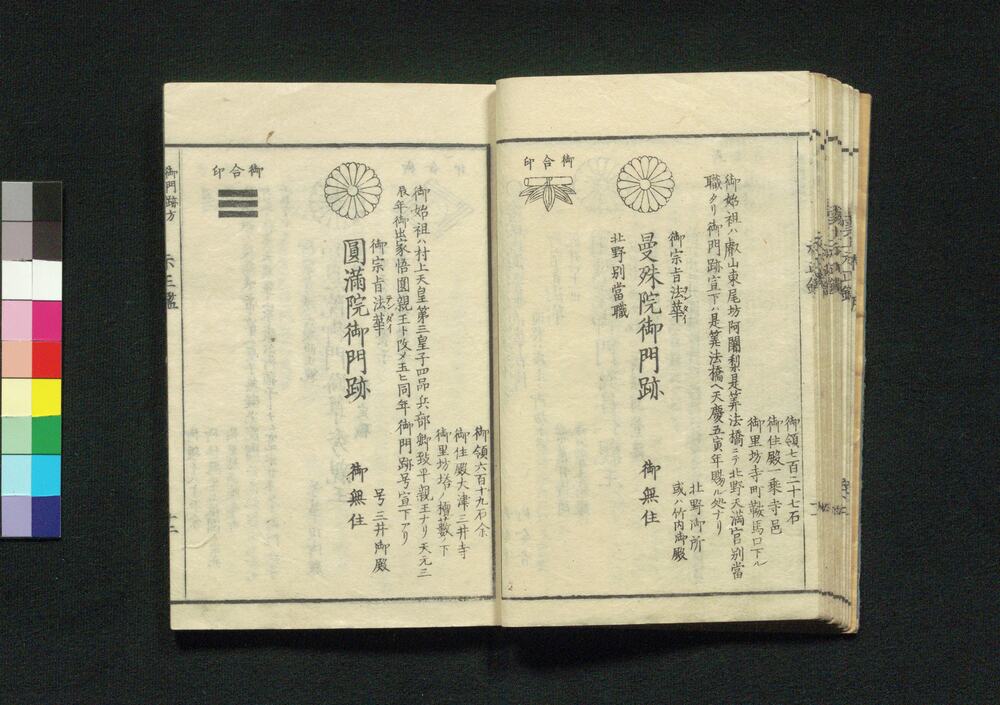 御領七百二十七石
御住殿一乗寺邑
御里坊寺町鞍馬口下ル
御始祖ハ叡山東尾坊阿闍梨是筭法橋ニテ北野天満宮別當
職タリ御門跡宣下ハ是筭法橋ヘ天慶五寅年賜ル処ナリ
北野御所
或ハ竹内御殿
御宗旨法華
曼殊院御門跡 御無住
北野別當職
御合印
御領六百十九石余
御住殿大津三井寺
御里坊塔ノ檀薮ノ下
御始祖ハ村上天皇第三皇子四品兵部卿致平親王ナリ天元三
辰年御出家悟圓親王ト改メ玉ヒ同年御門跡号宣下アリ
号三井御殿
御宗旨法華
テンダイ
圓滿院御門跡 御無住
御合印
御門跡方
十二